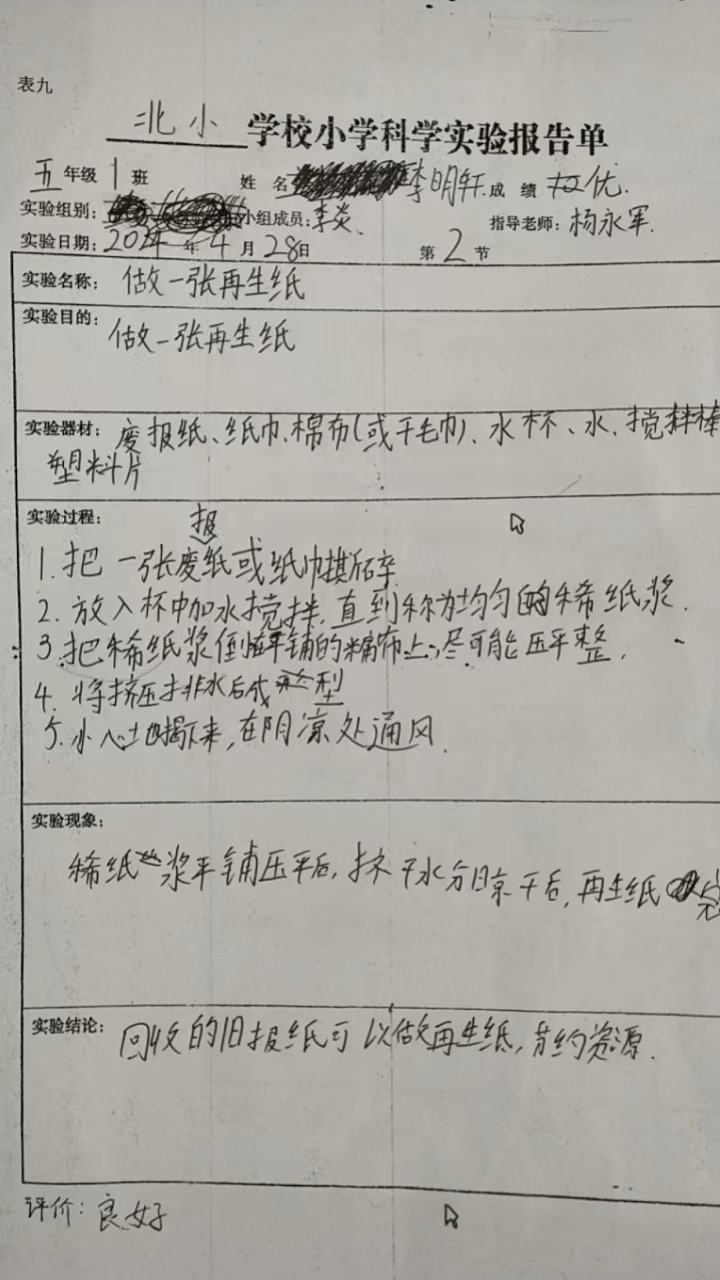 表九
北小学校小学科学实验报告单
五年级1班 姓名 李明轩 成绩 优.
实验组别: 小组成员:李炎. 指导老师:杨永军.
实验日期:2024年4月28日 第2节
实验名称: 做一张再生纸
实验目的: 做一张再生纸
实验器材: 废报纸、纸巾、棉布(或干毛巾)、水杯、水、搅拌棒
塑料片
实验过程:
1.把一张废报纸或纸巾撕碎
2.放入杯中加水搅拌,直到称为均匀的稀纸浆.
3.把稀纸浆倒在平铺的棉布上,尽可能压平整.
4.将挤压排水后成型
5.小心地揭下来,在阴凉处通风.
实验现象:
稀纸浆平铺压平后,挤干水分晾干后,再生纸完
实验结论: 回收的旧报纸可以做再生纸,节约资源.
评价:良好